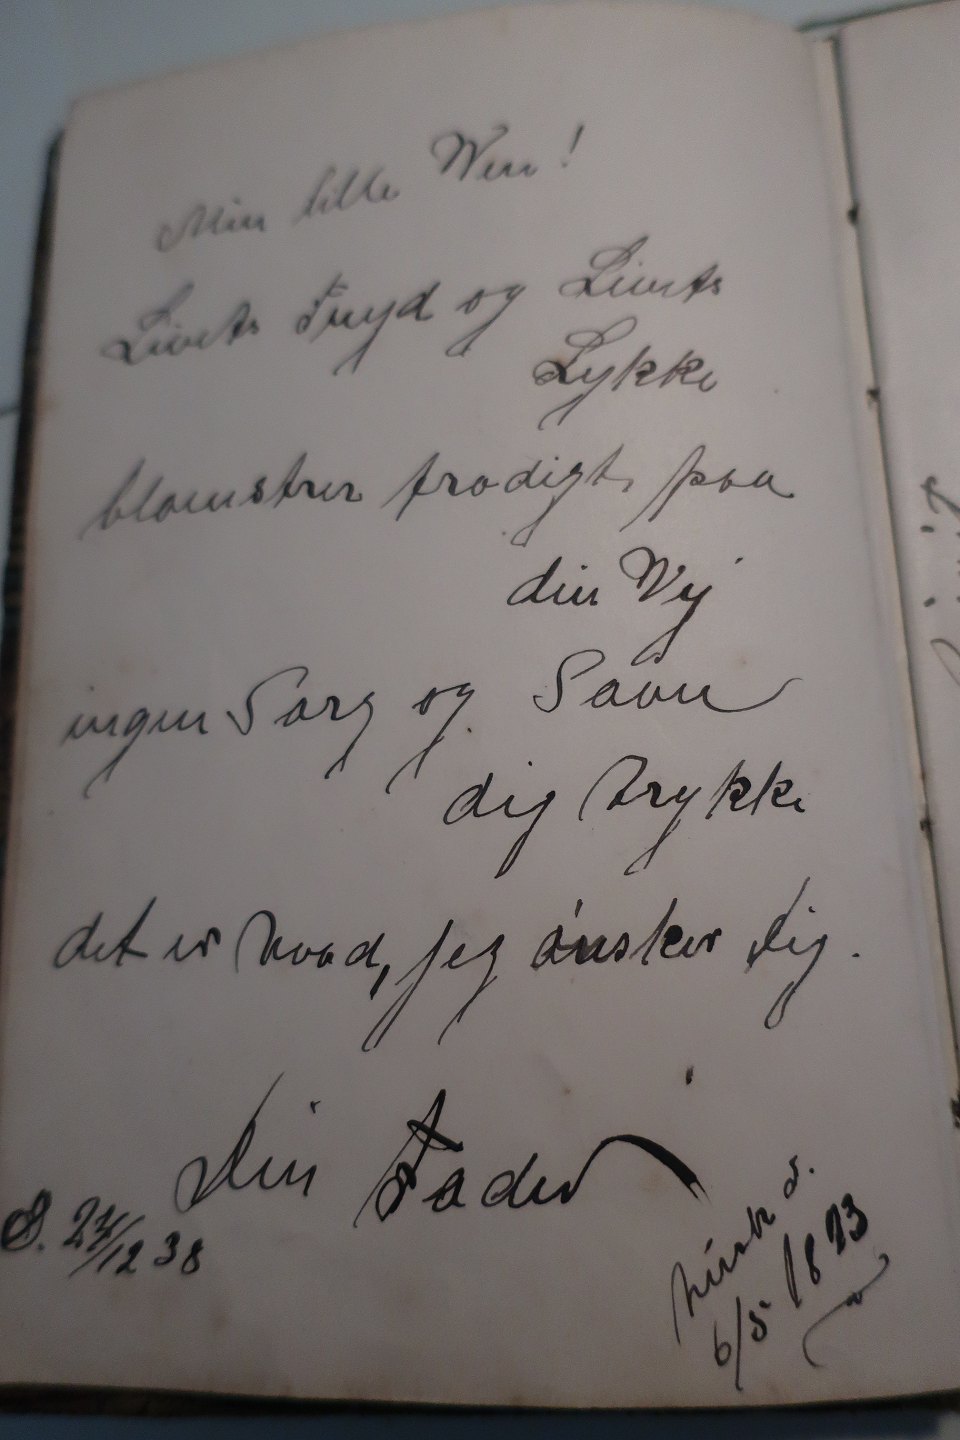 Min lille Ven!
Livets Fryd og Livets
Lykke
blomstrer frodigt paa
din Vej
ingen Sorg og Savn
dig trykke
det er hvad, jeg ønsker dig.
Din Fader
d. 24/12 38
født d.
6/5 1893